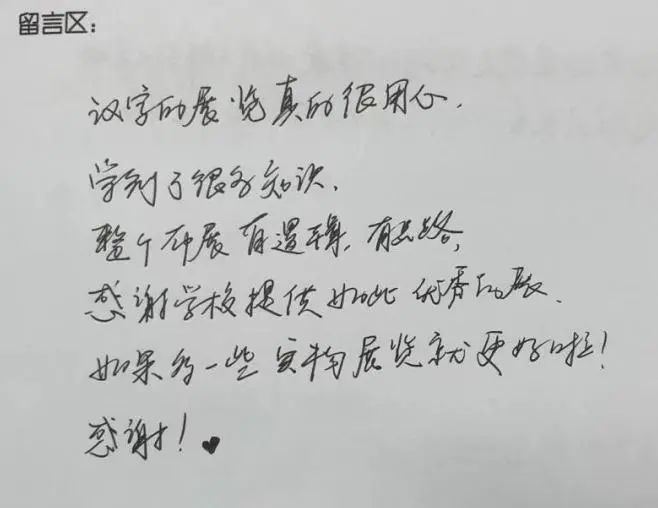 留言区:
汉字的展览真的很用心.
学到了很多知识.
整个布展有逻辑,有思路,
感谢学校提供如此优秀的展.
如果多一些实物展览就更好啦!
感谢!